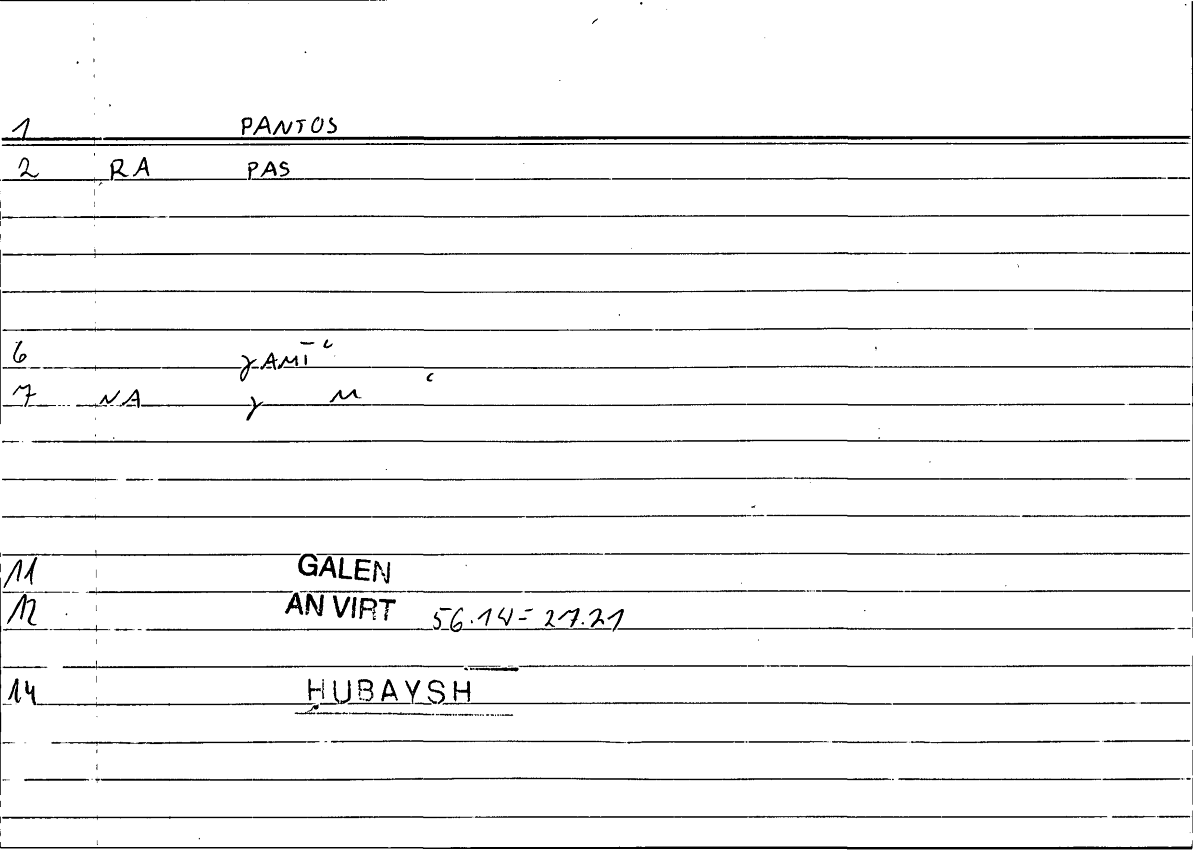 1 PANTOS
2 RA PAS
6 ɣAMĪʿ
7 NA ɣ M ʿ
11 GALEN
12 AN VIRT 56.14=27.21
14 ḤUBAYSH